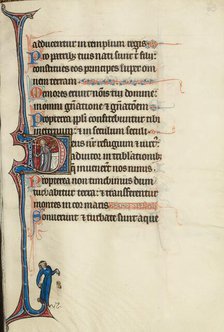 Adducentur in templum regis
Pro patribꝫ tuis nati sunt t̾ filii:
constitues eos principes super om
nem terram
Memores erunt nōis tui domine:
in omni gn̄atione et gn̄atōem
Propterea ppl̄i confitebuntur tibi
in eternum: et in seculum seculi
Deus nr̄ refugium et uirt᷒:
adiutor in tribulationibꝫ
que inuenerunt nos nimis
Propterea non timebimus dum
turbabitur terra: et transferentur
montes in cor maris
Sonuerunt et turbate sunt aque